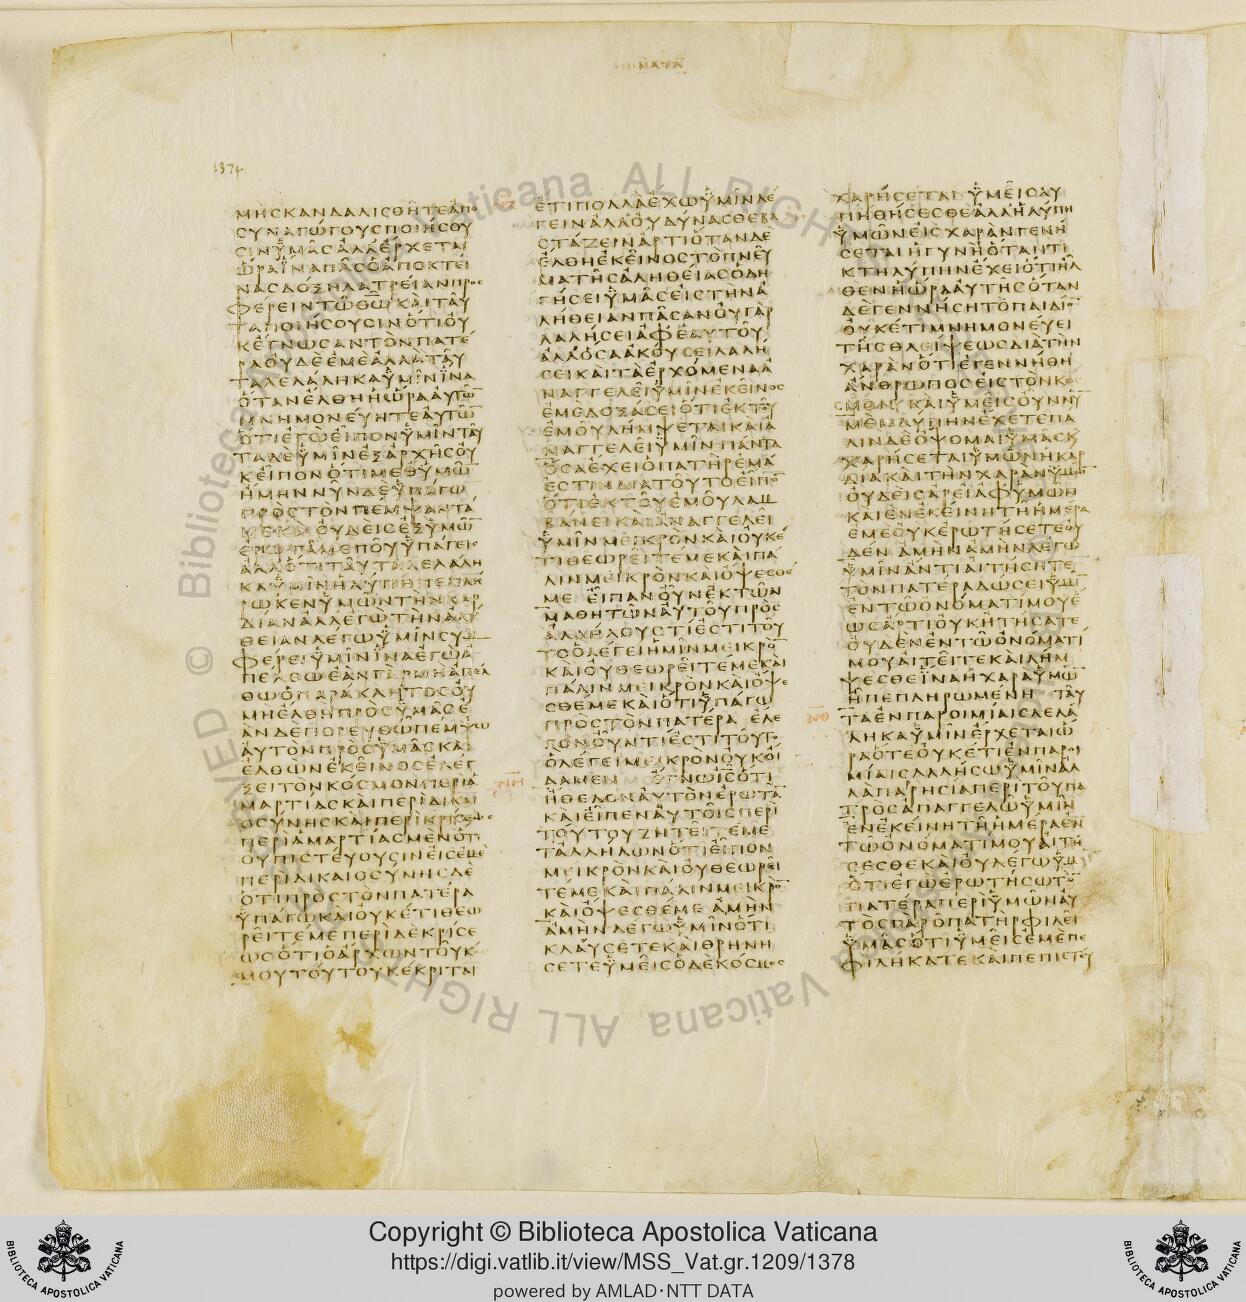 1374
ΜΗΣΚΑΝΔΑΛΙΣΘΗΤΕΑΠΟ
ΣΥΝΑΓΩΓΟΥΣΠΟΙΗΣΟΥ
ΣΙΝΫΜΑΣΑΛΛΕΡΧΕΤΑΙ
ΩΡΑΪΝΑΠΑΣΟΑΠΟΚΤΕΙ
ΝΑΣΔΟΞΗΛΑΤΡΕΙΑΝΠΡΟΣ
ΦΕΡΕΙΝΤΩΘΩΚΑΙΤΑΥ
ΤΑΠΟΙΗΣΟΥΣΙΝΟΤΙΟΥ
ΚΕΓΝΩΣΑΝΤΟΝΠΑΤΕ
ΡΑΟΥΔΕΕΜΕΑΛΛΑΤΑΥ
ΤΑΛΕΛΑΛΗΚΑΫΜΙΝΙΝΑ
ΟΤΑΝΕΛΘΗΗΩΡΑΑΥΤΩ
ΜΝΗΜΟΝΕΥΗΤΕΑΥΤΩ
ΟΤΙΕΓΩΕΙΠΟΝΫΜΙΝΤΑΥ
ΤΑΔΕΫΜΙΝΕΞΑΡΧΗΣΟΥ
ΚΕΙΠΟΝΟΤΙΜΕΘΫΜΩ
ΗΜΗΝΝΥΝΔΕΫΠΑΓΩ
ΠΡΟΣΤΟΝΠΕΜΨΑΝΤΑ
ΜΕΚΑΙΟΥΔΕΙΣΕΞΫΜΩ
ΕΡΩΤΑΜΕΠΟΥΫΠΑΓΕΙΣ
ΑΛΛΟΤΙΤΑΥΤΑΛΕΛΑΛΗ
ΚΑΫΜΙΝΗΛΥΠΗΠΕΠΛΗ
ΡΩΚΕΝΫΜΩΝΤΗΝΚΑΡ
ΔΙΑΝΑΛΛΕΓΩΤΗΝΑΛΗ
ΘΕΙΑΝΛΕΓΩΫΜΙΝΣΥΜ
ΦΕΡΕΙΫΜΙΝΙΝΑΕΓΩΑ
ΠΕΛΘΩΕΑΝΓΑΡΜΗΑΠΕΛ
ΘΩΟΠΑΡΑΚΛΗΤΟΣΟΥ
ΜΗΕΛΘΗΠΡΟΣΫΜΑΣΕ
ΑΝΔΕΠΟΡΕΥΘΩΠΕΜΨΩ
ΑΥΤΟΝΠΡΟΣΫΜΑΣΚΑΙ
ΕΛΘΩΝΕΚΕΙΝΟΣΕΛΕΓ
ΞΕΙΤΟΝΚΟΣΜΟΝΠΕΡΙΑ
ΜΑΡΤΙΑΣΚΑΙΠΕΡΙΔΙΚΑΙ
ΟΣΥΝΗΣΚΑΙΠΕΡΙΚΡΙΣΕΩΣ
ΠΕΡΙΑΜΑΡΤΙΑΣΜΕΝΟΤΙ
ΟΥΠΙΣΤΕΥΟΥΣΙΝΕΙΣΕΜΕ
ΠΕΡΙΔΙΚΑΙΟΣΥΝΗΣΔΕ
ΟΤΙΠΡΟΣΤΟΝΠΑΤΕΡΑ
ΫΠΑΓΩΚΑΙΟΥΚΕΤΙΘΕΩ
ΡΕΙΤΕΜΕΠΕΡΙΔΕΚΡΙΣΕ
ΩΣΟΤΙΟΑΡΧΩΝΤΟΥΚΟΣ
ΜΟΥΤΟΥΤΟΥΚΕΚΡΙΤΑΙ
ΕΤΙΠΟΛΛΑΕΧΩΫΜΙΝΛΕ
ΓΕΙΝΑΛΛΟΥΔΥΝΑΣΘΕΒΑ
ΣΤΑΖΕΙΝΑΡΤΙΟΤΑΝΔΕ
ΕΛΘΗΕΚΕΙΝΟΣΤΟΠΝΕΥ
ΜΑΤΗΣΑΛΗΘΕΙΑΣΟΔΗ
ΓΗΣΕΙΫΜΑΣΕΙΣΤΗΝΑ
ΛΗΘΕΙΑΝΠΑΣΑΝΟΥΓΑΡ
ΛΑΛΗΣΕΙΑΦΕΑΥΤΟΥ
ΑΛΛΟΣΑΑΚΟΥΣΕΙΛΑΛΗ
ΣΕΙΚΑΙΤΑΕΡΧΟΜΕΝΑΑ
ΝΑΓΓΕΛΕΙΫΜΙΝΕΚΕΙΝΟΣ
ΕΜΕΔΟΞΑΣΕΙΟΤΙΕΚΤΟΥ
ΕΜΟΥΛΗΜΨΕΤΑΙΚΑΙΑ
ΝΑΓΓΕΛΕΙΫΜΙΝΠΑΝΤΑ
ΟΣΑΕΧΕΙΟΠΑΤΗΡΕΜΑ
ΕΣΤΙΝΔΙΑΤΟΥΤΟΕΙΠΟ
ΟΤΙΕΚΤΟΥΕΜΟΥΛΑΜ
ΒΑΝΕΙΚΑΙΑΝΑΓΓΕΛΕΙ
ΫΜΙΝΜΕΙΚΡΟΝΚΑΙΟΥΚΕ
ΤΙΘΕΩΡΕΙΤΕΜΕΚΑΙΠΑ
ΛΙΝΜΕΙΚΡΟΝΚΑΙΟΨΕΣΘΕ
ΜΕ ΕΙΠΑΝΟΥΝΕΚΤΩΝ
ΜΑΘΗΤΩΝΑΥΤΟΥΠΡΟΣ
ΑΛΛΗΛΟΥΣΤΙΕΣΤΙΤΟΥ
ΤΟΟΛΕΓΕΙΗΜΙΝΜΕΙΚΡΟ
ΚΑΙΟΥΘΕΩΡΕΙΤΕΜΕΚΑΙ
ΠΑΛΙΝΜΕΙΚΡΟΝΚΑΙΟΨΕ
ΣΘΕΜΕΚΑΙΟΤΙΫΠΑΓΩ
ΠΡΟΣΤΟΝΠΑΤΕΡΑ ΕΛΕ
ΓΟΝΟΥΝΤΙΕΣΤΙΤΟΥΤΟ
ΟΛΕΓΕΙΜΕΙΚΡΟΝΟΥΚΟΙ
ΔΑΜΕΝ ΕΓΝΩΙΣΟΤΙ
ΗΘΕΛΟΝΑΥΤΟΝΕΡΩΤΑ
ΚΑΙΕΙΠΕΝΑΥΤΟΙΣΠΕΡΙ
ΤΟΥΤΟΥΖΗΤΕΙΤΕΜΕ
ΤΑΛΛΗΛΩΝΟΤΙΕΙΠΟΝ
ΜΕΙΚΡΟΝΚΑΙΟΥΘΕΩΡΕΙ
ΤΕΜΕΚΑΙΠΑΛΙΝΜΕΙΚΡΟ
ΚΑΙΟΨΕΣΘΕΜΕ ΑΜΗΝ
ΑΜΗΝΛΕΓΩΫΜΙΝΟΤΙ
ΚΛΑΥΣΕΤΕΚΑΙΘΡΗΝΗ
ΣΕΤΕΫΜΕΙΣΟΔΕΚΟΣΜΟΣ
ΧΑΡΗΣΕΤΑΙ ΫΜΕΙΣΛΥ
ΠΗΘΗΣΕΣΘΕΑΛΛΗΛΥΠΗ
ΫΜΩΝΕΙΣΧΑΡΑΝΓΕΝΗ
ΣΕΤΑΙΗΓΥΝΗΟΤΑΝΤΙ
ΚΤΗΛΥΠΗΝΕΧΕΙΟΤΙΗΛ
ΘΕΝΗΩΡΑΑΥΤΗΣΟΤΑΝ
ΔΕΓΕΝΝΗΣΗΤΟΠΑΙΔΙΟ
ΟΥΚΕΤΙΜΝΗΜΟΝΕΥΕΙ
ΤΗΣΘΛΕΙΨΕΩΣΔΙΑΤΗΝ
ΧΑΡΑΝΟΤΙΕΓΕΝΝΗΘΗ
ΑΝΘΡΩΠΟΣΕΙΣΤΟΝΚΟ
ΣΜΟΝ ΚΑΙΫΜΕΙΣΟΥΝΝΥ
ΜΕΝΛΥΠΗΝΕΧΕΤΕΠΑ
ΛΙΝΔΕΟΨΟΜΑΙΫΜΑΣΚ
ΧΑΡΗΣΕΤΑΙΫΜΩΝΗΚΑΡ
ΔΙΑΚΑΙΤΗΝΧΑΡΑΝΫΜΩ
ΟΥΔΕΙΣΑΡΕΙΑΦΫΜΩΝ
ΚΑΙΕΝΕΚΕΙΝΗΤΗΗΜΕΡΑ
ΕΜΕΟΥΚΕΡΩΤΗΣΕΤΕΟΥ
ΔΕΝ ΑΜΗΝΑΜΗΝΛΕΓΩ
ΫΜΙΝΑΝΤΙΑΙΤΗΣΗΤΕ
ΤΟΝΠΑΤΕΡΑΔΩΣΕΙΫΜΙ
ΕΝΤΩΟΝΟΜΑΤΙΜΟΥΕ
ΩΣΑΡΤΙΟΥΚΗΤΗΣΑΤΕ
ΟΥΔΕΝΕΝΤΩΟΝΟΜΑΤΙ
ΜΟΥΑΙΤΕΙΤΕΚΑΙΛΗΜ
ΨΕΣΘΕΪΝΑΗΧΑΡΑΫΜΩ
ΗΠΕΠΛΗΡΩΜΕΝΗ ΤΑΥ
ΤΑΕΝΠΑΡΟΙΜΙΑΙΣΛΕΛΑ
ΛΗΚΑΫΜΙΝΕΡΧΕΤΑΙΩ
ΡΑΟΤΕΟΥΚΕΤΙΕΝΠΑΡΟΙ
ΜΙΑΙΣΛΑΛΗΣΩΫΜΙΝΑΛ
ΛΑΠΑΡΗΣΙΑΠΕΡΙΤΟΥΠΑ
ΤΡΟΣΑΠΑΓΓΕΛΩΫΜΙΝ
ΕΝΕΚΕΙΝΗΤΗΗΜΕΡΑΕΝ
ΤΩΟΝΟΜΑΤΙΜΟΥΑΙΤΗ
ΣΕΣΘΕΚΑΙΟΥΛΕΓΩΫΜΙ
ΟΤΙΕΓΩΕΡΩΤΗΣΩΤΟ
ΠΑΤΕΡΑΠΕΡΙΫΜΩΝΑΥ
ΤΟΣΓΑΡΟΠΑΤΗΡΦΙΛΕΙ
ΫΜΑΣΟΤΙΫΜΕΙΣΕΜΕΠΕ
ΦΙΛΗΚΑΤΕ ΚΑΙΠΕΠΙΣΤΕΥ
Copyright © Biblioteca Apostolica Vaticana
https://digi.vatlib.it/view/MSS_Vat.gr.1209/1378
powered by AMLAD·NTT DATA
BIBLIOTECA APOSTOLICA VATICANA
BIBLIOTECA APOSTOLICA VATICANA